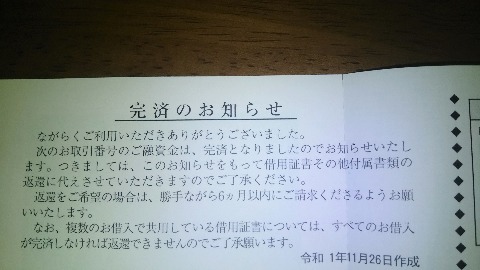 完済のお知らせ
ながらくご利用いただきありがとうございました。
次のお取引番号のご融資金は、完済となりましたのでお知らせいたし
ます。つきましては、このお知らせをもって借用証書その他付属書類の
返還に代えさせていただきますのでご了承ください。
返還をご希望の場合は、勝手ながら6ヵ月以内にご請求くださるようお願
いいたします。
なお、複数のお借入で共用している借用証書については、すべてのお借入
が完済しなければ返還できませんのでご了承願います。
令和 1年11月26日作成